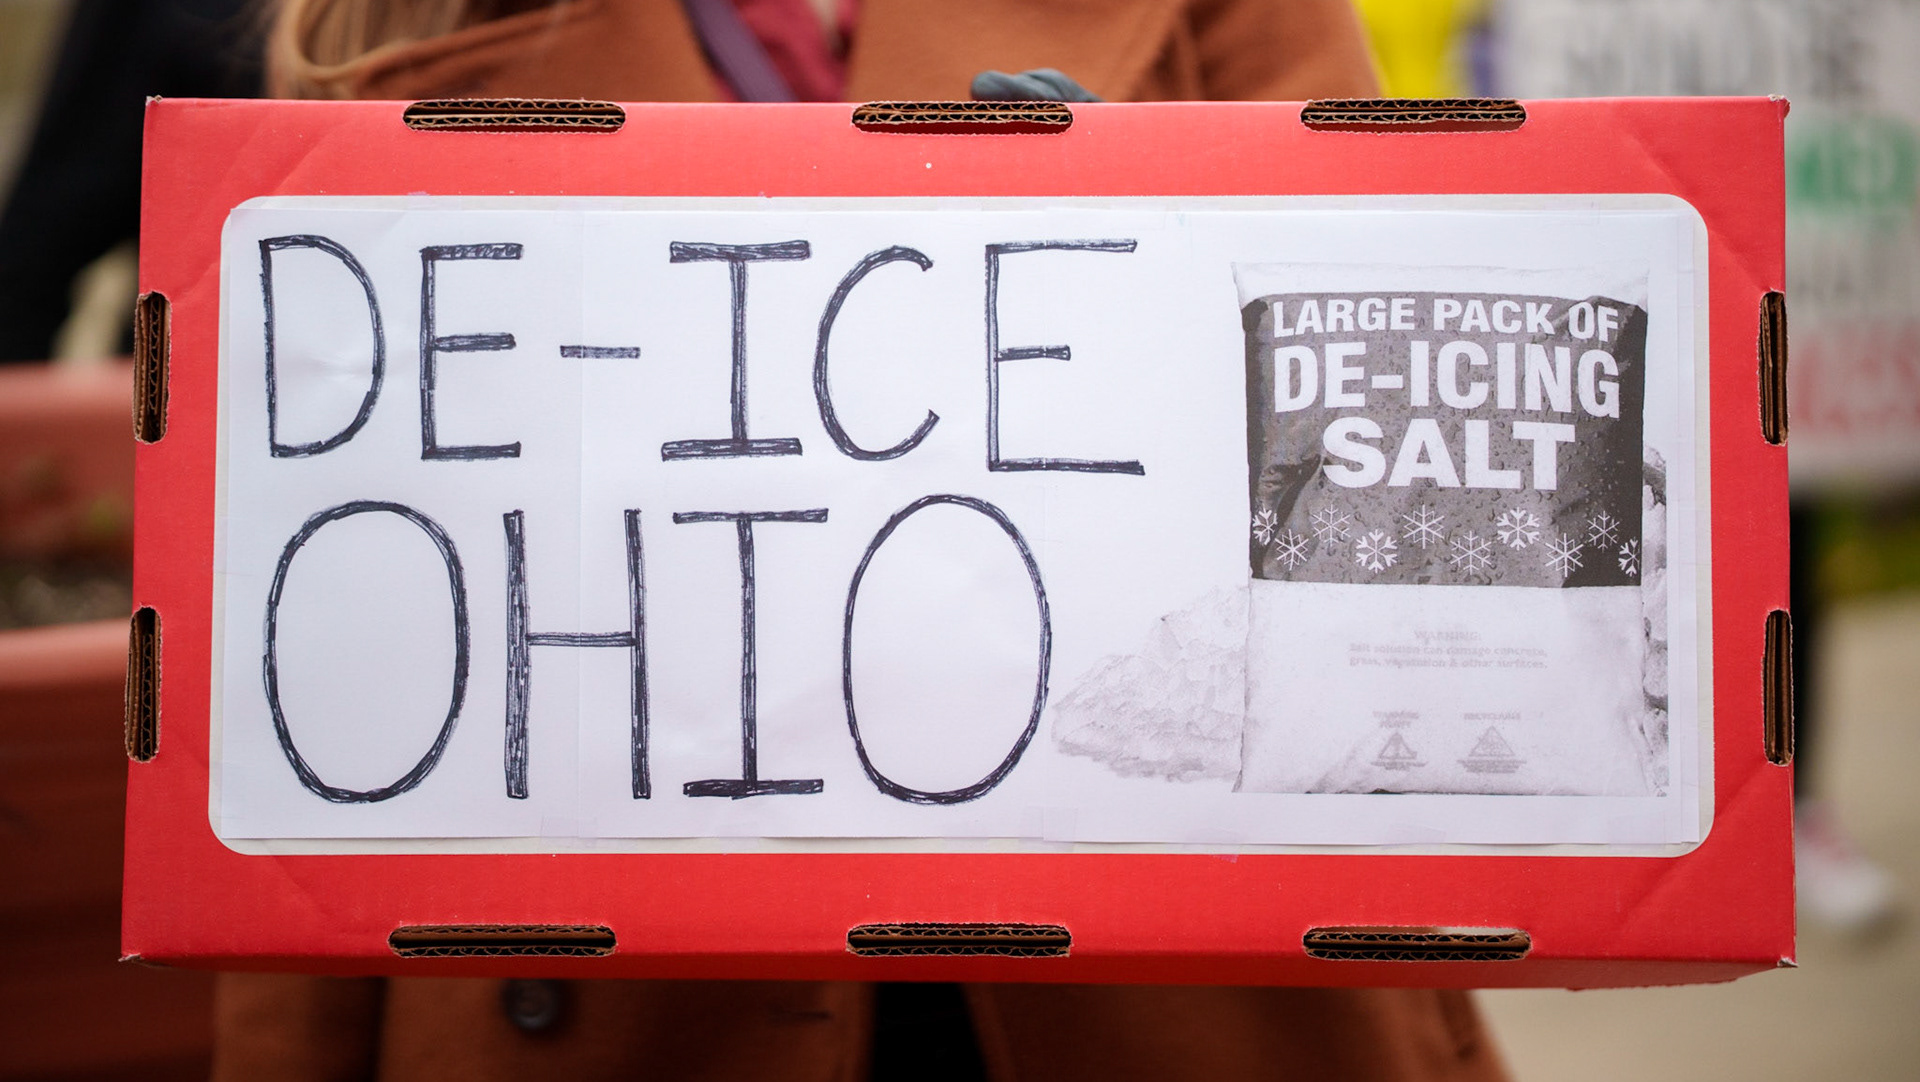 DE-ICE
OHIO
LARGE PACK OF
DE-ICING
SALT
WARNING:
Salt solution can damage concrete,
grass, vegetation & other surfaces.
RECYCLABLE